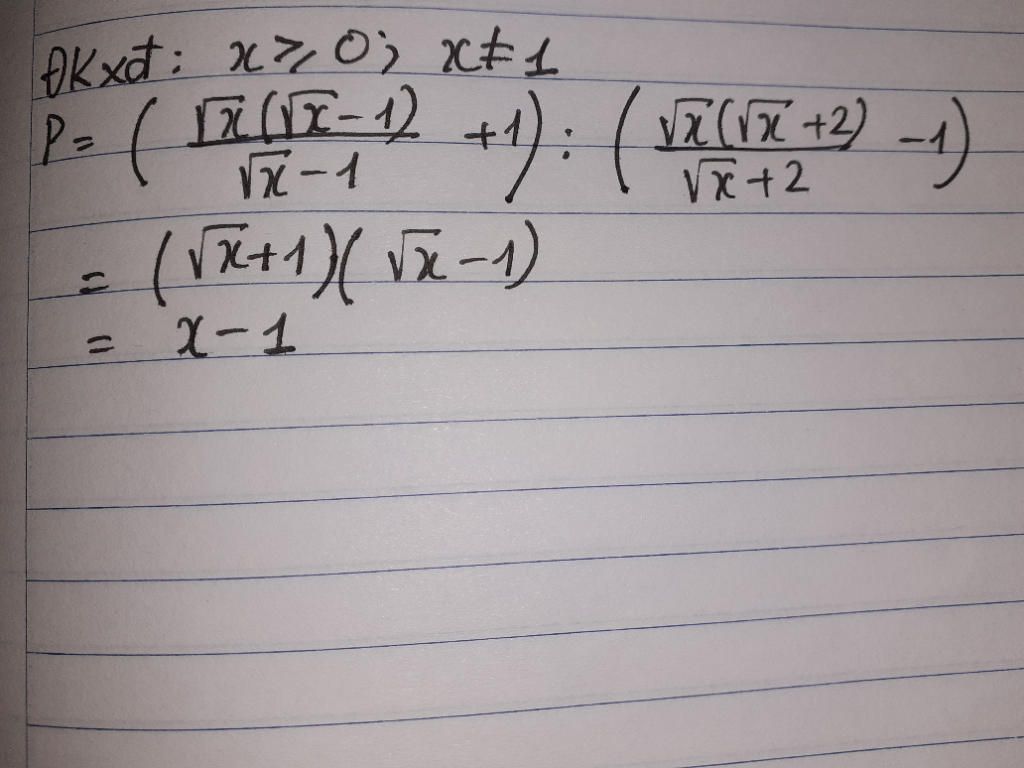 ĐKxđ: x ⩾ 0; x ≠ 1
P = ( √x(√x - 1) / √x - 1 + 1) : ( √x(√x + 2) / √x + 2 - 1)
= (√x + 1)(√x - 1)
= x - 1